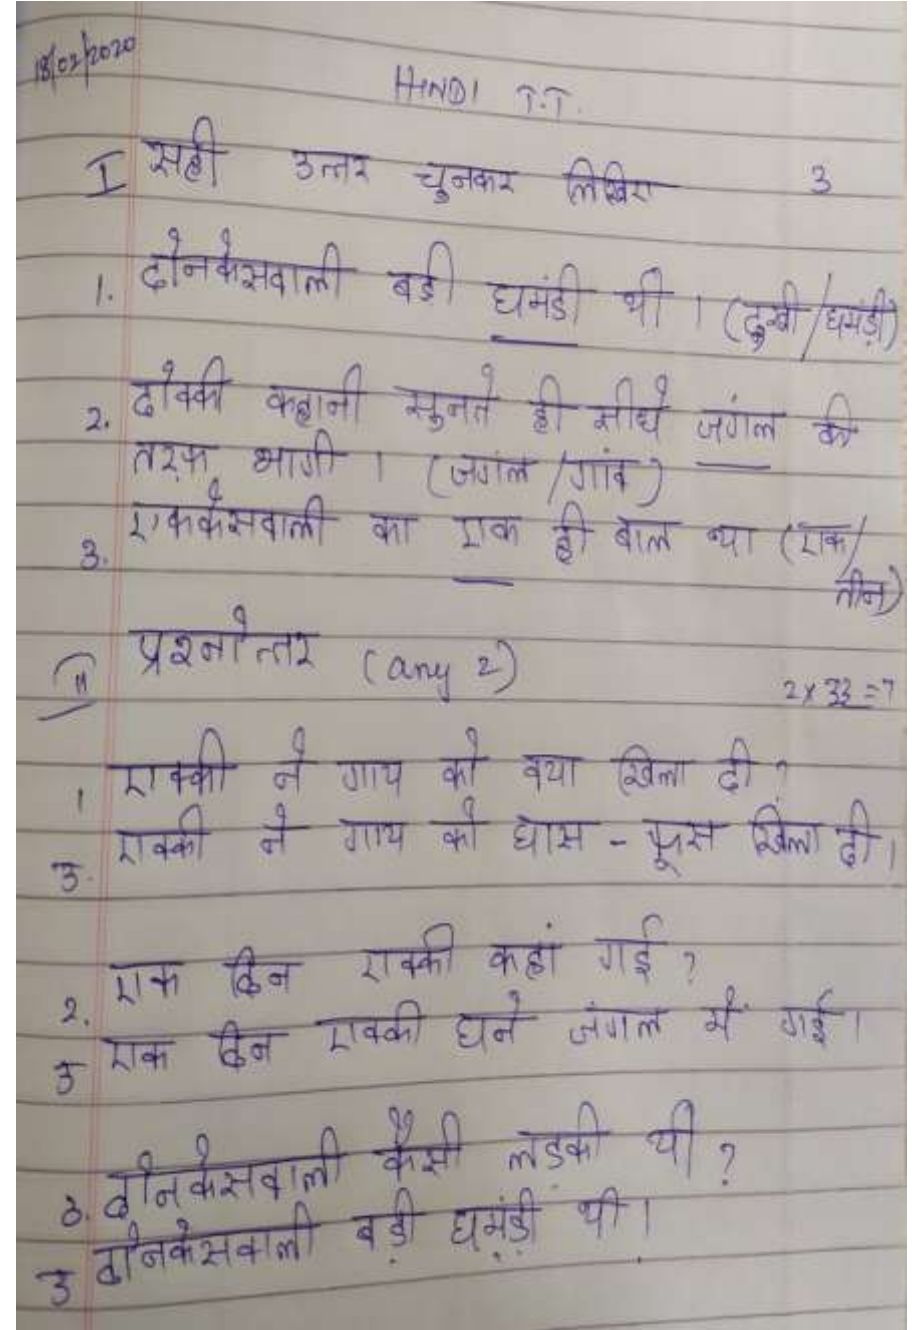 18/02/2020
HINDI T.T.
I सही उत्तर चुनकर लिखिए 3
1. दोनकेसवाली बडी घमंडी थी । (दुखी/घमंड़ी)
2. दोक्की कहानी सुनते ही सीधे जगंल की
तरफ़ भागी । (जगंल/गांव)
3. एककेसवाली का एक ही बाल था (एक/
तीन)
II प्रश्नोत्तर (any 2)
2x 3½ =7
1 एक्की ने गाय को क्या खिला दी ?
उ. एक्की ने गाय को घास - फूस खिला दी ।
2. एक दिन एक्की कहां गई ?
उ एक दिन एक्की घने जंगल में गई ।
3. दोनकेसवाली कैसी लड़की थी ?
उ दोनकेसवाली बड़ी घमंड़ी थी ।